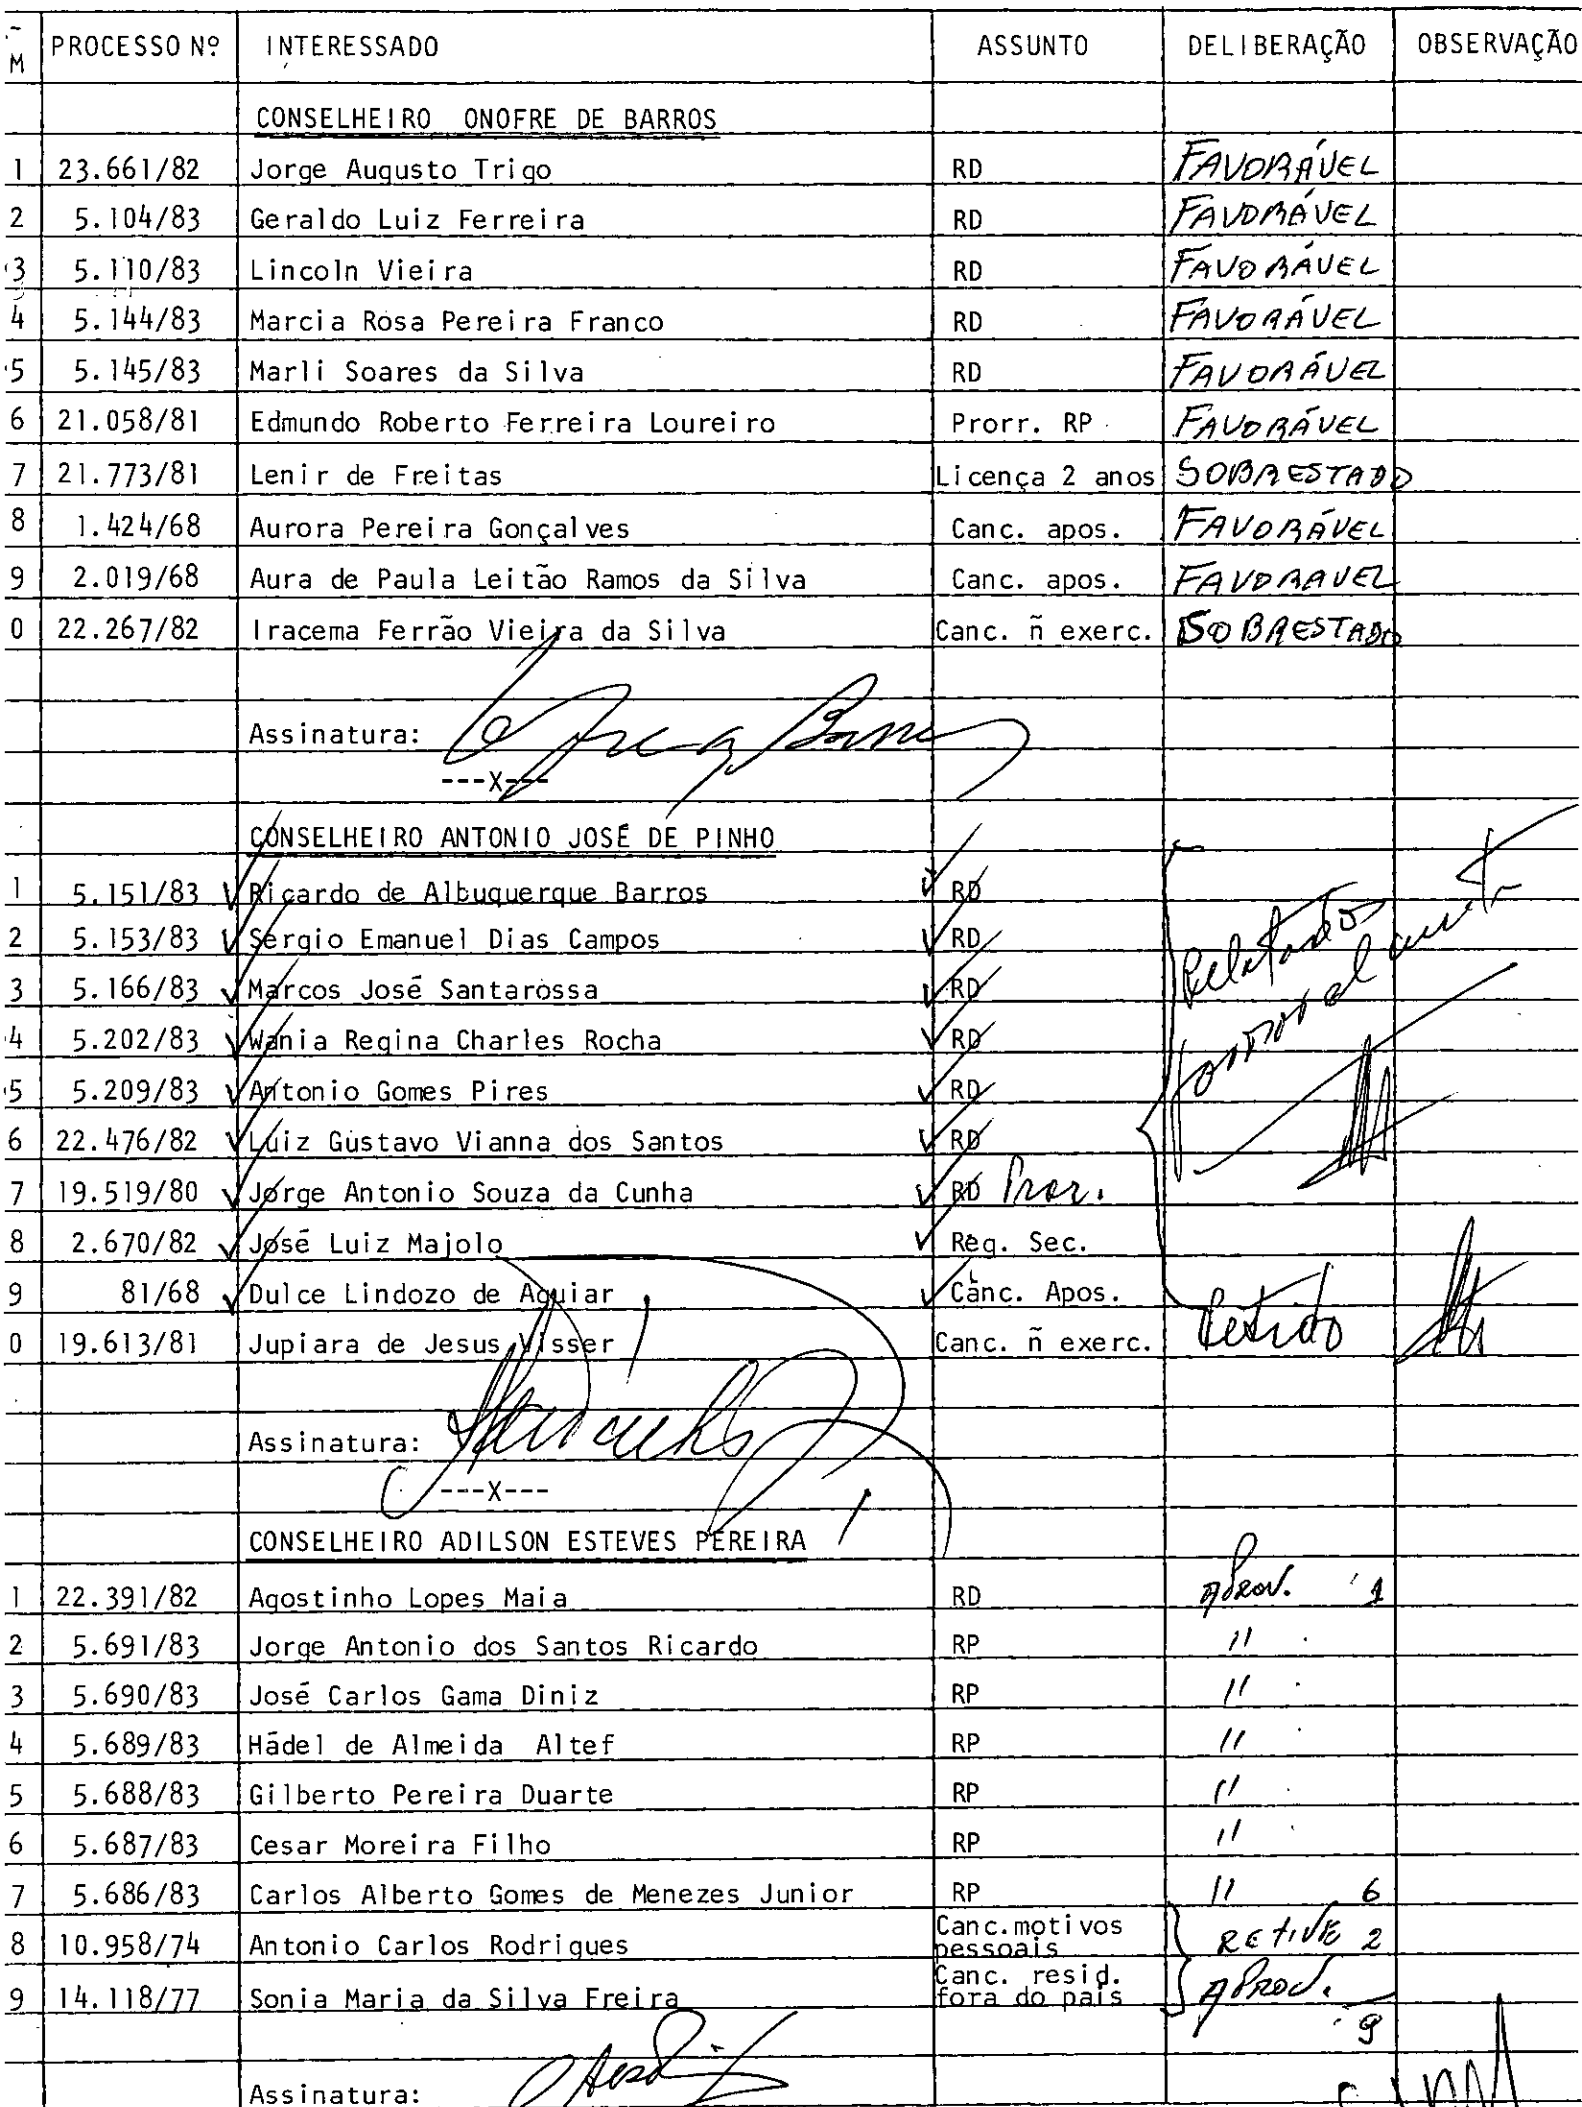 M PROCESSO Nº INTERESSADO ASSUNTO DELIBERAÇÃO OBSERVAÇÃO
CONSELHEIRO ONOFRE DE BARROS
1 23.661/82 Jorge Augusto Trigo RD FAVORÁVEL
2 5.104/83 Geraldo Luiz Ferreira RD FAVORÁVEL
3 5.110/83 Lincoln Vieira RD FAVORÁVEL
4 5.144/83 Marcia Rosa Pereira Franco RD FAVORÁVEL
5 5.145/83 Marli Soares da Silva RD FAVORÁVEL
6 21.058/81 Edmundo Roberto Ferreira Loureiro Prorr. RP FAVORÁVEL
7 21.773/81 Lenir de Freitas Licença 2 anos SOBRESTADO
8 1.424/68 Aurora Pereira Gonçalves Canc. apos. FAVORÁVEL
9 2.019/68 Aura de Paula Leitão Ramos da Silva Canc. apos. FAVORAVEL
0 22.267/82 Iracema Ferrão Vieira da Silva Canc. ñ exerc. SOBRESTADO
Assinatura:
---X---
CONSELHEIRO ANTONIO JOSÉ DE PINHO
1 5.151/83 Ricardo de Albuquerque Barros RD
2 5.153/83 Sérgio Emanuel Dias Campos RD
3 5.166/83 Marcos José Santarossa RD
4 5.202/83 Wania Regina Charles Rocha RD
5 5.209/83 Antonio Gomes Pires RD
6 22.476/82 Luiz Gustavo Vianna dos Santos RD
7 19.519/80 Jorge Antonio Souza da Cunha RD Pror.
8 2.670/82 José Luiz Majolo Reg. Sec.
9 81/68 Dulce Lindozo de Aguiar Canc. Apos.
0 19.613/81 Jupiara de Jesus Visser Canc. ñ exerc. Retido
Relatados favoravelmente
Assinatura:
---X---
CONSELHEIRO ADILSON ESTEVES PEREIRA
1 22.391/82 Agostinho Lopes Maia RD Aprov. 1
2 5.691/83 Jorge Antonio dos Santos Ricardo RP "
3 5.690/83 José Carlos Gama Diniz RP "
4 5.689/83 Hádel de Almeida Altef RP "
5 5.688/83 Gilberto Pereira Duarte RP "
6 5.687/83 Cesar Moreira Filho RP "
7 5.686/83 Carlos Alberto Gomes de Menezes Junior RP " 6
8 10.958/74 Antonio Carlos Rodrigues Canc.motivos pessoais 2
9 14.118/77 Sonia Maria da Silva Freira Canc. resid. fora do país Aprov.
9
Assinatura: